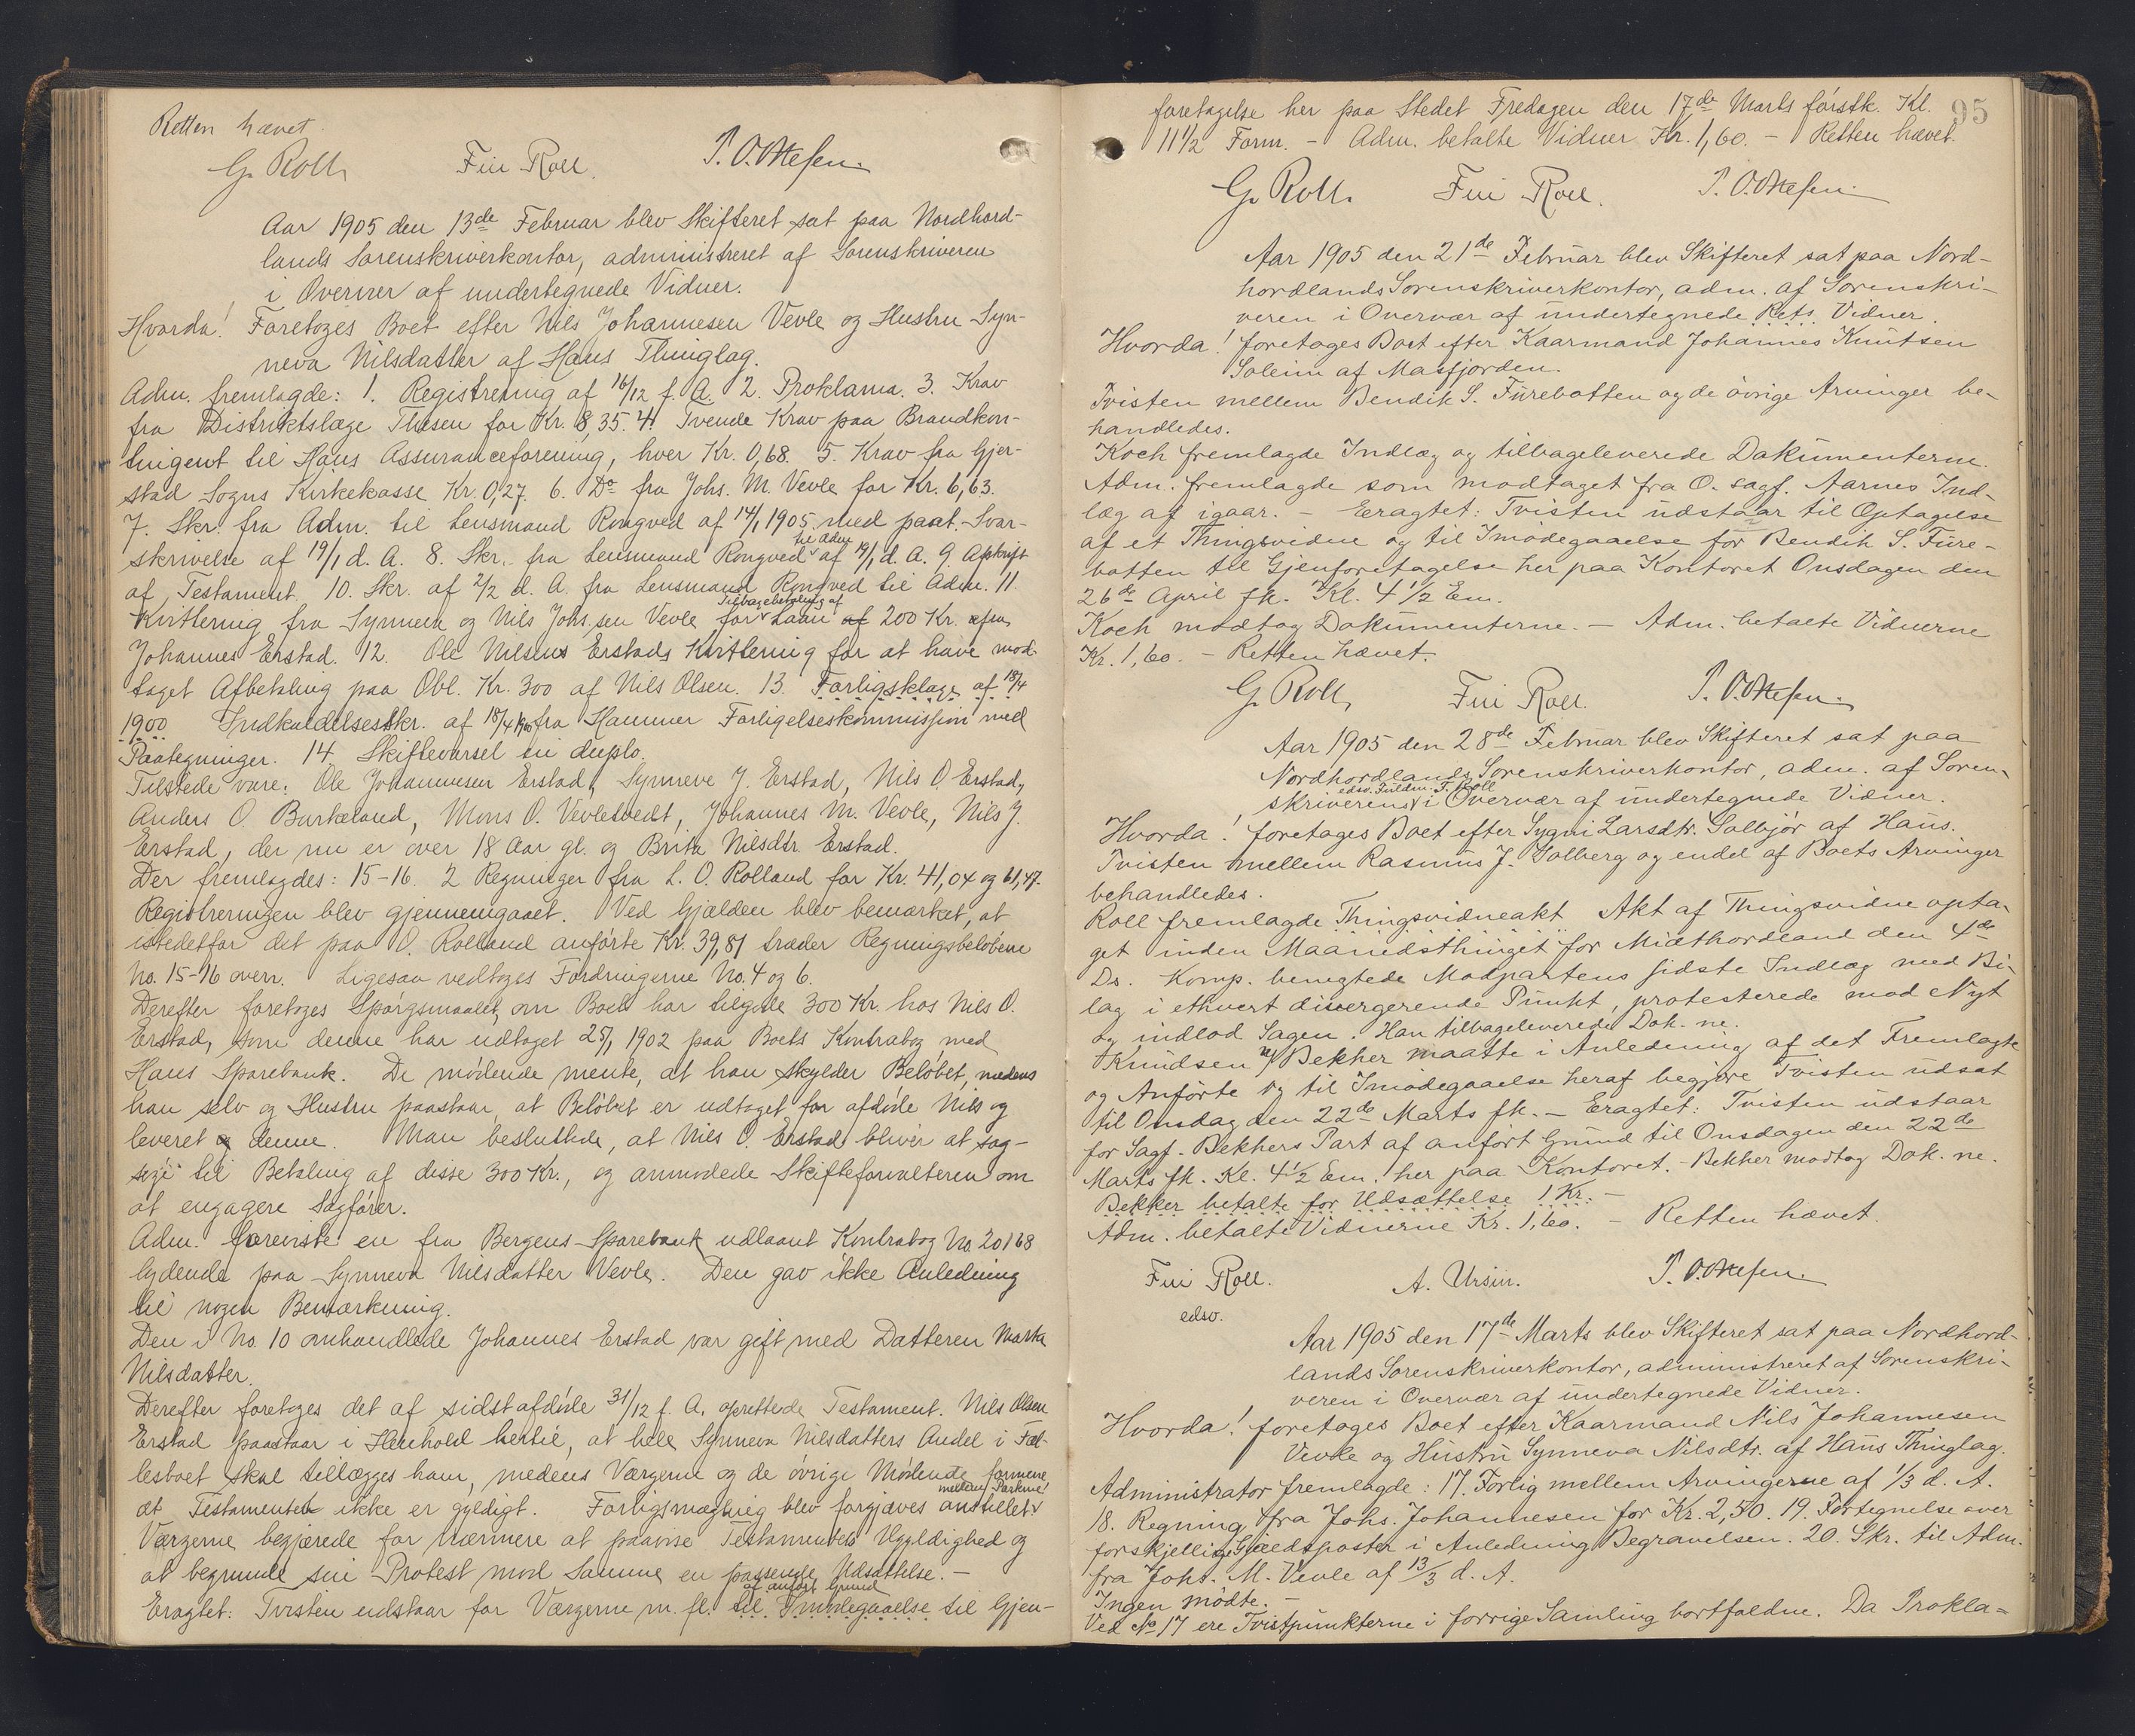 Retten hævet.
G. Roll. Finn Roll. P. O. Ottesen.
Aar 1905 den 13de Februar blev Skifteret sat paa Nordhord-
lands Sorenskriverkontor, administreret af Sorenskriveren
i Overvær af undertegnede Vidner.
Hvorda! Foretoges Boet efter Nils Johannesen Vevle og Hustru Syn-
neva Nilsdatter af Haus Thinglag.
Adm. fremlagde: 1. Registrering af 16/12 f. A. 2. Proklama. 3. Krav
fra Distriktslæge Thesen for Kr. 8,35. 4. Tvende Krav paa Brandkon-
tingent til Haus Assuranceforening, hver Kr. 0,68. 5. Krav fra Gjer-
stad Sogns Kirkekasse Kr. 0,27. 6. Do fra Johs. M. Vevle for Kr. 6,63.
7. Skr. fra Adm. til Lensmand Rongved af 14/1 1905 med paat. Svar-
skrivelse af 19/1 d. A. 8. Skr. fra Lensmand Rongved til Adm af 19/1 d. A. 9. Afskrift
af Testament. 10. Skr. af 2/2 d. A. fra Lensmand Rongved til Adm. 11.
Kvittering fra Synneva og Nils Johs.sen Vevle for Tilbagebetaling af Laan af 200 Kr. fra
Johannes Erstad. 12. Ole Nilsens Erstads Kvittering for at have mod-
taget Afbetaling paa Obl. Kr. 300 af Nils Olsen. 13. Forligsklage af 18/4
1900 Indkaldelsesskr. af 18/4 1900 fra Hammer Forligelseskommission med
Paategninger. 14. Skiftevarsel in duplo.
Tilstede vare: Ole Johannesen Erstad, Synneve J. Erstad, Nils O. Erstad,
Anders O. Burkeland, Mons O. Vevletvedt, Johannes M. Vevle, Nils J.
Erstad, der nu er over 18 Aar gl. og Brita Nilsdtr. Erstad.
Der fremlagdes: 15-16. 2 Regninger fra L. O. Rolland for Kr. 41,04 og 61,47.
Registreringen blev gjennemgaaet. Ved Gjælden blev bemærket, at
istedetfor det paa O. Rolland anførte Kr. 39,81 træder Regningsbeløbene
No. 15-16 overn. Ligesaa vedtoges Fordringerne No. 4 og 6.
Derefter foretoges Spørgsmaalet, om Boet har tilgode 300 Kr. hos Nils O.
Erstad, som denne har udtaget 25/1 1902 paa Boets Kontrabog med
Haus Sparebank. De mødende mente, at han skylder Beløbet, medens
han selv og Hustru paastaar, at Beløbet er udtaget for afdøde Nils og
leveret denne. Man besluttede, at Nils O. Erstad bliver at sag-
søge til Betaling af disse 300 Kr., og anmodede Skifteforvalteren om
at engagere Sagfører.
Adm. foreviste en fra Bergens Sparebank udlaant Kontrabog No. 20168
lydende paa Synneva Nilsdatter Vevle. Den gav ikke Anledning
til nogen Bemærkning.
Den i No. 10 omhandlede Johannes Erstad var gift med Datteren Marta
Nilsdatter.
Derefter foretoges det af sidstafdøde 31/12 f. A. oprettede Testament. Nils Olsen
Erstad paastaar i Henhold hertil, at hele Synneva Nilsdatters Andel i Fæl-
lesboet skal tillægges ham, medens Værgerne og de øvrige Mødende formene
at Testamentet ikke er gyldigt. Forligsmægling blev forgjæves anstillet mellem Parterne.
Værgerne begjærede for nærmere at paavise Testamentets Ugyldighed og
at begrunde sin Protest mod Samme en passende Udsættelse. —
Eragtet: Tvisten udstaar for Værgerne m. fl. af anført Grund til Imødegaaelse til Gjen-
95
foretagelse her paa Stedet Fredagen den 17de Marts førstk. Kl.
11 1/2 Form. — Adm. betalte Vidner Kr. 1,60. — Retten hævet.
G. Roll. Finn Roll. P. O. Ottesen.
Aar 1905 den 21de Februar blev Skifteret sat paa Nord-
hordlands Sorenskriverkontor, adm. af Sorenskri-
veren i Overvær af undertegnede Rets Vidner.
Hvorda! foretages Boet efter Kaarmand Johannes Knutsen
Soleim af Masfjorden.
Tvisten mellem Bendik S. Furebotten og de øvrige Arvinger be-
handledes.
Koch fremlagde Indlæg og tilbageleverede Dokumenterne.
Adm. fremlagde som modtaget fra O. sagf. Aarnes Ind-
læg af igaar. — Eragtet: Tvisten udstaar til Optagelse
af et Thingsvidne og til Imødegaaelse for Bendik S. Fure-
botten til Gjenforetagelse her paa Kontoret Onsdagen den
26de April fk. Kl. 4 1/2 Em.
Koch modtog Dokumenterne. — Adm. betalte Vidnerne
Kr. 1,60. — Retten hævet.
G. Roll, Finn Roll. P. O. Ottesen.
Aar 1905 den 28de Februar blev Skifteret sat paa
Nordhordlands Sorenskriverkontor, adm. af Soren-
skriverens edsv. Fuldm. F. Roll i Overvær af undertegnede Vidner.
Hvorda! foretages Boet efter Sygni Larsdtr. Solbjør af Haus.
Tvisten mellem Rasmus J. Solberg og endel af Boets Arvinger
behandledes.
Roll fremlagde Thingsvidneakt Akt af Thingsvidne opta-
get inden Maanedsthinget for Midthordland den 4de
Ds. Komp. benegtede Modpartens sidste Indlæg med Bi-
lag i ethvert divergerende Punkt, protesterede mod Nyt
og indlod Sagen. Han tilbageleverede Dok.ne.
Knudsen v/ Bekker maatte i Anledning af det Fremlagte
og Anførte og til Imødegaaelse heraf begjære Tvisten udsat
til Onsdag den 22de Marts fk. — Eragtet: Tvisten udstaar
for Sagf. Bekkers Part af anført Grund til Onsdagen den 22de
Marts fk. Kl. 4 1/2 Em. her paa Kontoret. — Bekker modtog Dok.ne.
Bekker betalte for Udsættelse 1 Kr. —
Adm. betalte Vidnerne Kr. 1,60. — Retten hævet.
Finn Roll. A. Ursin. P. O. Ottesen.
edsv.
Aar 1905 den 17de Marts blev Skifteret sat paa Nordhord-
lands Sorenskriverkontor, administreret af Sorenskri-
veren i Overvær af undertegnede Vidner.
Hvorda! foretages Boet efter Kaarmand Nils Johannesen
Vevle og Hustru Synneva Nilsdtr. af Haus Thinglag.
Administrator fremlagde: 17. Forlig mellem Arvingerne af 1/3 d. A.
18. Regning fra Johs. Johannesen for Kr. 2,50. 19. Fortegnelse over
forskjellige Gjældsposter i Anledning Begravelsen. 20. Skr. til Adm.
fra Johs. M. Vevle af 13/3 d. A.
Ingen mødte. —
Ved No 17 ere Tvistpunkterne i forrige Samling bortfaldne. Da Prokla=